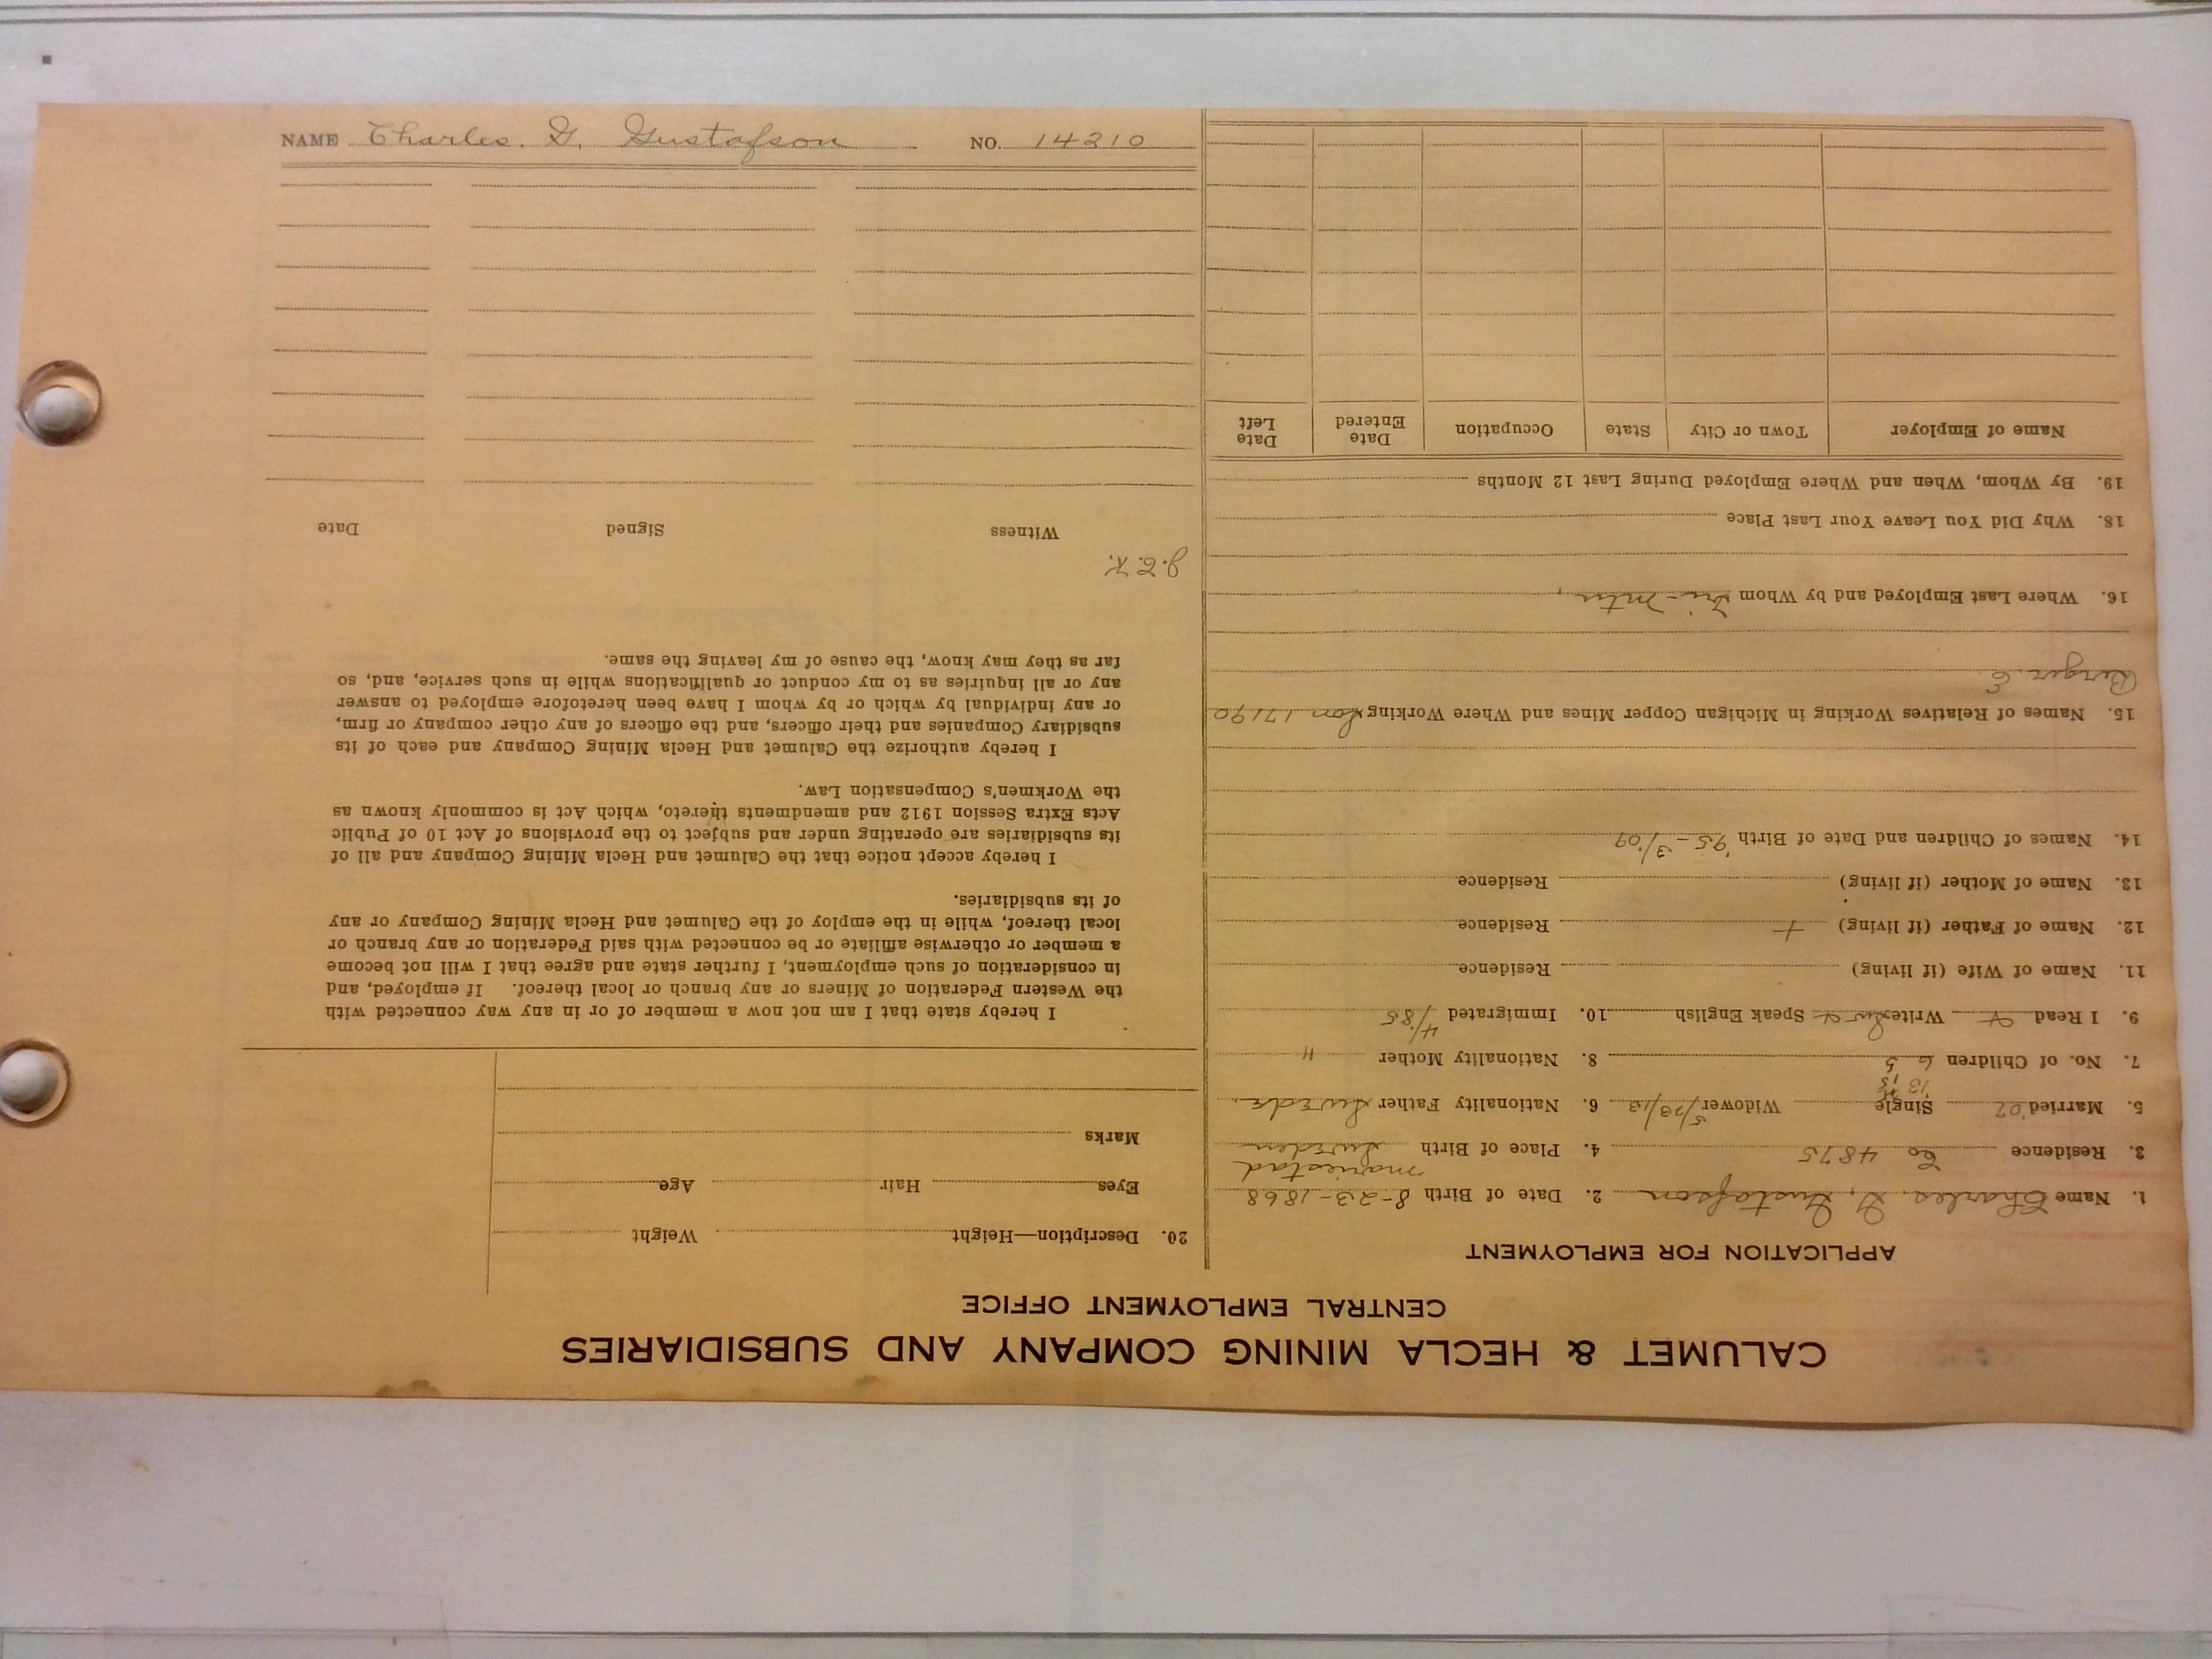 CALUMET & HECLA MINING COMPANY AND SUBSIDIARIES
CENTRAL EMPLOYMENT OFFICE
APPLICATION FOR EMPLOYMENT
1. Name Charles. G. Gustafson 2. Date of Birth 8-23-1868
Mariestad
3. Residence Co 4875 4. Place of Birth Sweden
5. Married '07 Single Widower 5/23/13 6. Nationality Father Swede
'13 '15
7. No. of Children 6 5 8. Nationality Mother "
9. I Read Write Speak English 10. Immigrated 4/85
11. Name of Wife (if living) Residence
12. Name of Father (if living) + Residence
13. Name of Mother (if living) Residence
14. Names of Children and Date of Birth '95-3/'09
15. Names of Relatives Working in Michigan Copper Mines and Where Working Son 17190
Berger E
16. Where Last Employed and by Whom Tri-Mtn
18. Why Did You Leave Your Last Place
19. By Whom, When and Where Employed During Last 12 Months
Name of Employer Town or City State Occupation Date Entered Date Left
20. Description—Height Weight
Eyes Hair Age
Marks
I hereby state that I am not now a member of or in any way connected with
the Western Federation of Miners or any branch or local thereof. If employed, and
in consideration of such employment, I further state and agree that I will not become
a member or otherwise affiliate or be connected with said Federation or any branch or
local thereof, while in the employ of the Calumet and Hecla Mining Company or any
of its subsidiaries.
I hereby accept notice that the Calumet and Hecla Mining Company and all of
its subsidiaries are operating under and subject to the provisions of Act 10 of Public
Acts Extra Session 1912 and amendments thereto, which Act is commonly known as
the Workmen's Compensation Law.
I hereby authorize the Calumet and Hecla Mining Company and each of its
subsidiary Companies and their officers, and the officers of any other company or firm,
or any individual by which or by whom I have been heretofore employed to answer
any or all inquiries as to my conduct or qualifications while in such service, and, so
far as they may know, the cause of my leaving the same.
J.E.K.
Witness Signed Date
NAME Charles. G. Gustafson NO. 14210